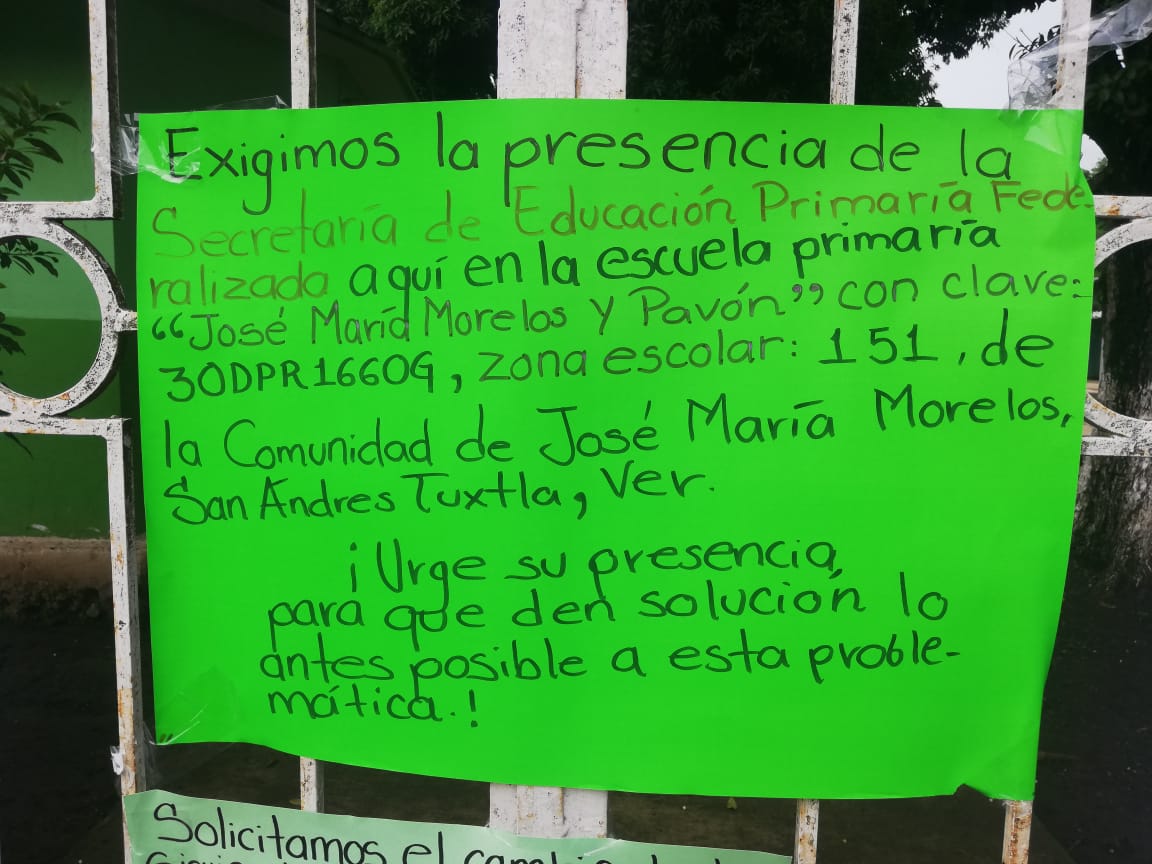 Exigimos la presencia de la
Secretaría de Educación Primaría Fede-
ralizada aquí en la escuela primaría
“José María Morelos y Pavón” con clave:
30DPR1660G, zona escolar: 151, de
la Comunidad de José María Morelos,
San Andres Tuxtla, Ver.
¡Urge su presencia,
para que den solución lo
antes posible a esta proble-
mática.!
Solicitamos el